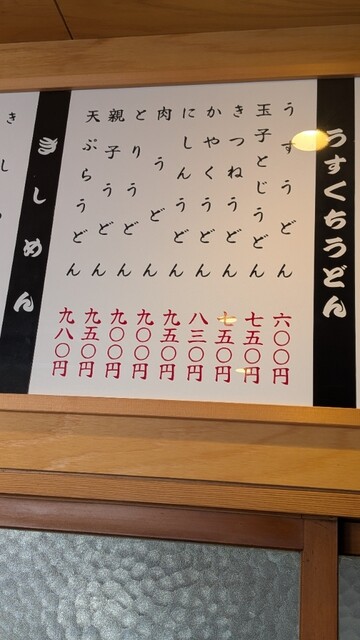 うすくちうどん
うすうどん 六〇〇円
玉子とじうどん 七五〇円
きつねうどん 七五〇円
かやくうどん 八三〇円
にしんうどん 九五〇円
肉うどん 九〇〇円
とりうどん 九〇〇円
親子うどん 九五〇円
天ぷらうどん 九八〇円
きしめん